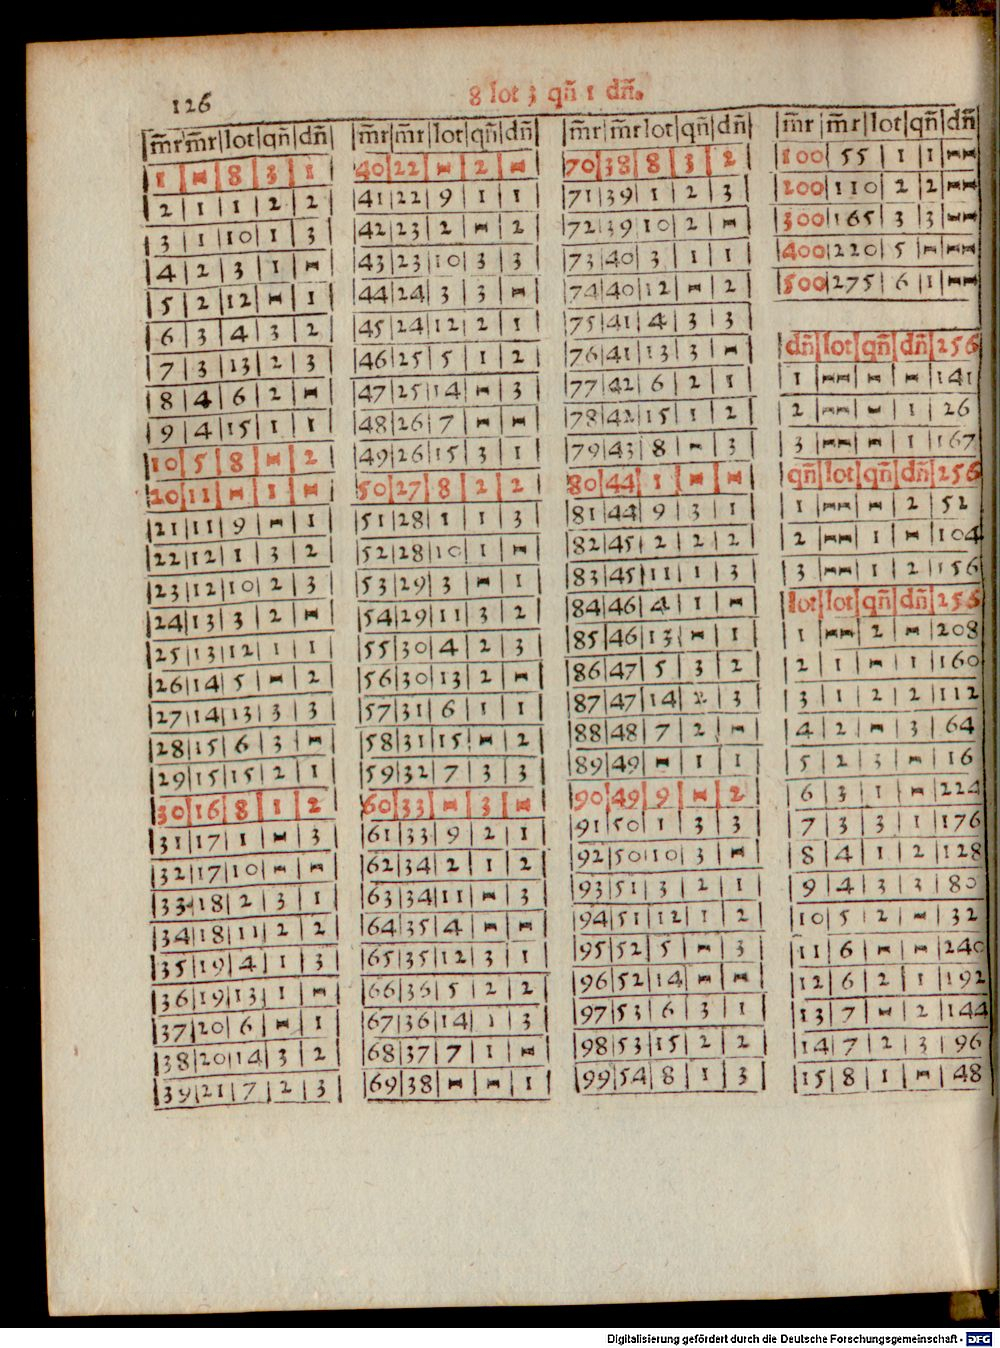 126
8 lot 3 qñ 1 dñ.
m̃r|m̃r|lot|qñ|dñ
1|–|8|3|1
2|1|1|2|2
3|1|10|1|3
4|2|3|1|–
5|2|12|–|1
6|3|4|3|2
7|3|13|2|3
8|4|6|2|–
9|4|15|1|1
10|5|8|–|2
20|11|–|1|–
21|11|9|–|1
22|12|1|3|2
23|12|10|2|3
24|13|3|2|–
25|13|12|1|1
26|14|5|–|2
27|14|13|3|3
28|15|6|3|–
29|15|15|2|1
30|16|8|1|2
31|17|1|–|3
32|17|10|–|–
33|18|2|3|1
34|18|11|2|2
35|19|4|1|3
36|19|13|1|–
37|20|6|–|1
38|20|14|3|2
39|21|7|2|3
m̃r|m̃r|lot|qñ|dñ
40|22|–|2|–
41|22|9|1|1
42|23|2|–|2
43|23|10|3|3
44|24|3|3|–
45|24|12|2|1
46|25|5|1|2
47|25|14|–|3
48|26|7|–|–
49|26|15|3|1
50|27|8|2|2
51|28|1|1|3
52|28|10|1|–
53|29|3|–|1
54|29|11|3|2
55|30|4|2|3
56|30|13|2|–
57|31|6|1|1
58|31|15|–|2
59|32|7|3|3
60|33|–|3|–
61|33|9|2|1
62|34|2|1|2
63|34|11|–|3
64|35|4|–|–
65|35|12|3|1
66|36|5|2|2
67|36|14|1|3
68|37|7|1|–
69|38|–|–|1
m̃r|m̃r|lot|qñ|dñ
70|38|8|3|2
71|39|1|2|3
72|39|10|2|–
73|40|3|1|1
74|40|12|–|2
75|41|4|3|3
76|41|13|3|–
77|42|6|2|1
78|42|15|1|2
79|43|8|–|3
80|44|1|–|–
81|44|9|3|1
82|45|2|2|2
83|45|11|1|3
84|46|4|1|–
85|46|13|–|1
86|47|5|3|2
87|47|14|2|3
88|48|7|2|–
89|49|–|1|1
90|49|9|–|2
91|50|1|3|3
92|50|10|3|–
93|51|3|2|1
94|51|12|1|2
95|52|5|–|3
96|52|14|–|–
97|53|6|3|1
98|53|15|2|2
99|54|8|1|3
m̃r|m̃r|lot|qñ|dñ
100|55|1|1|–
200|110|2|2|–
300|165|3|3|–
400|220|5|–|–
500|275|6|1|–
dñ|lot|qñ|dñ|256
1|–|–|–|141
2|–|–|1|26
3|–|–|1|167
qñ|lot|qñ|dñ|256
1|–|–|2|52
2|–|1|–|104
3|–|1|2|156
lot|lot|qñ|dñ|256
1|–|2|–|208
2|1|–|1|160
3|1|2|2|112
4|2|–|3|64
5|2|3|–|16
6|3|1|–|224
7|3|3|1|176
8|4|1|2|128
9|4|3|3|80
10|5|2|–|32
11|6|–|–|240
12|6|2|1|192
13|7|–|2|144
14|7|2|3|96
15|8|1|–|48
Digitalisierung gefördert durch die Deutsche Forschungsgemeinschaft - DFG